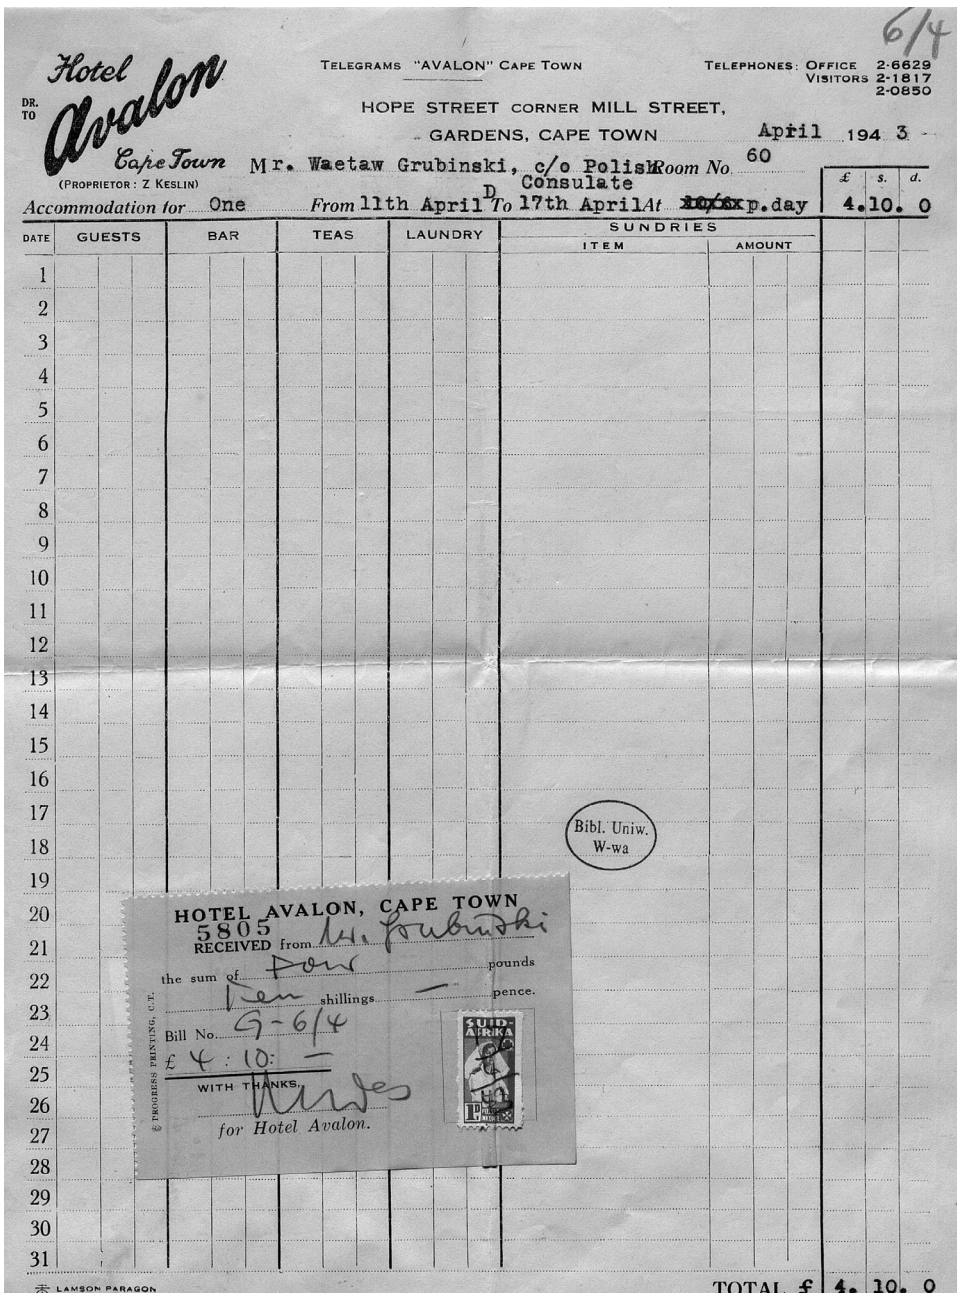 6/4
Hotel
Avalon
Cape Town
DR.
TO
(PROPRIETOR: Z KESLIN)
TELEGRAMS "AVALON" CAPE TOWN
TELEPHONES: OFFICE 2-6629
VISITORS 2-1817
2-0850
HOPE STREET CORNER MILL STREET,
GARDENS, CAPE TOWN
April 1943
Mr. Waetaw Grubinski, c/o Polish Room No. 60
Consulate
£ s. d.
Accommodation for One From 11th April D To 17th April At p.day 4.10. 0
DATE GUESTS BAR TEAS LAUNDRY SUNDRIES
ITEM AMOUNT
1
2
3
4
5
6
7
8
9
10
11
12
13
14
15
16
17
18
19
20
21
22
23
24
25
26
27
28
29
30
31
Bibl. Uniw.
W-wa
HOTEL AVALON, CAPE TOWN
5805
RECEIVED from Mr. Grubinski
the sum of Four pounds
Ten shillings — pence.
Bill No. G-6/4
£ 4 : 10: —
WITH THANKS.
for Hotel Avalon.
PROGRESS PRINTING, C.T.
SUID-
AFRIKA
1D
LAMSON PARAGON
TOTAL £ 4. 10. 0